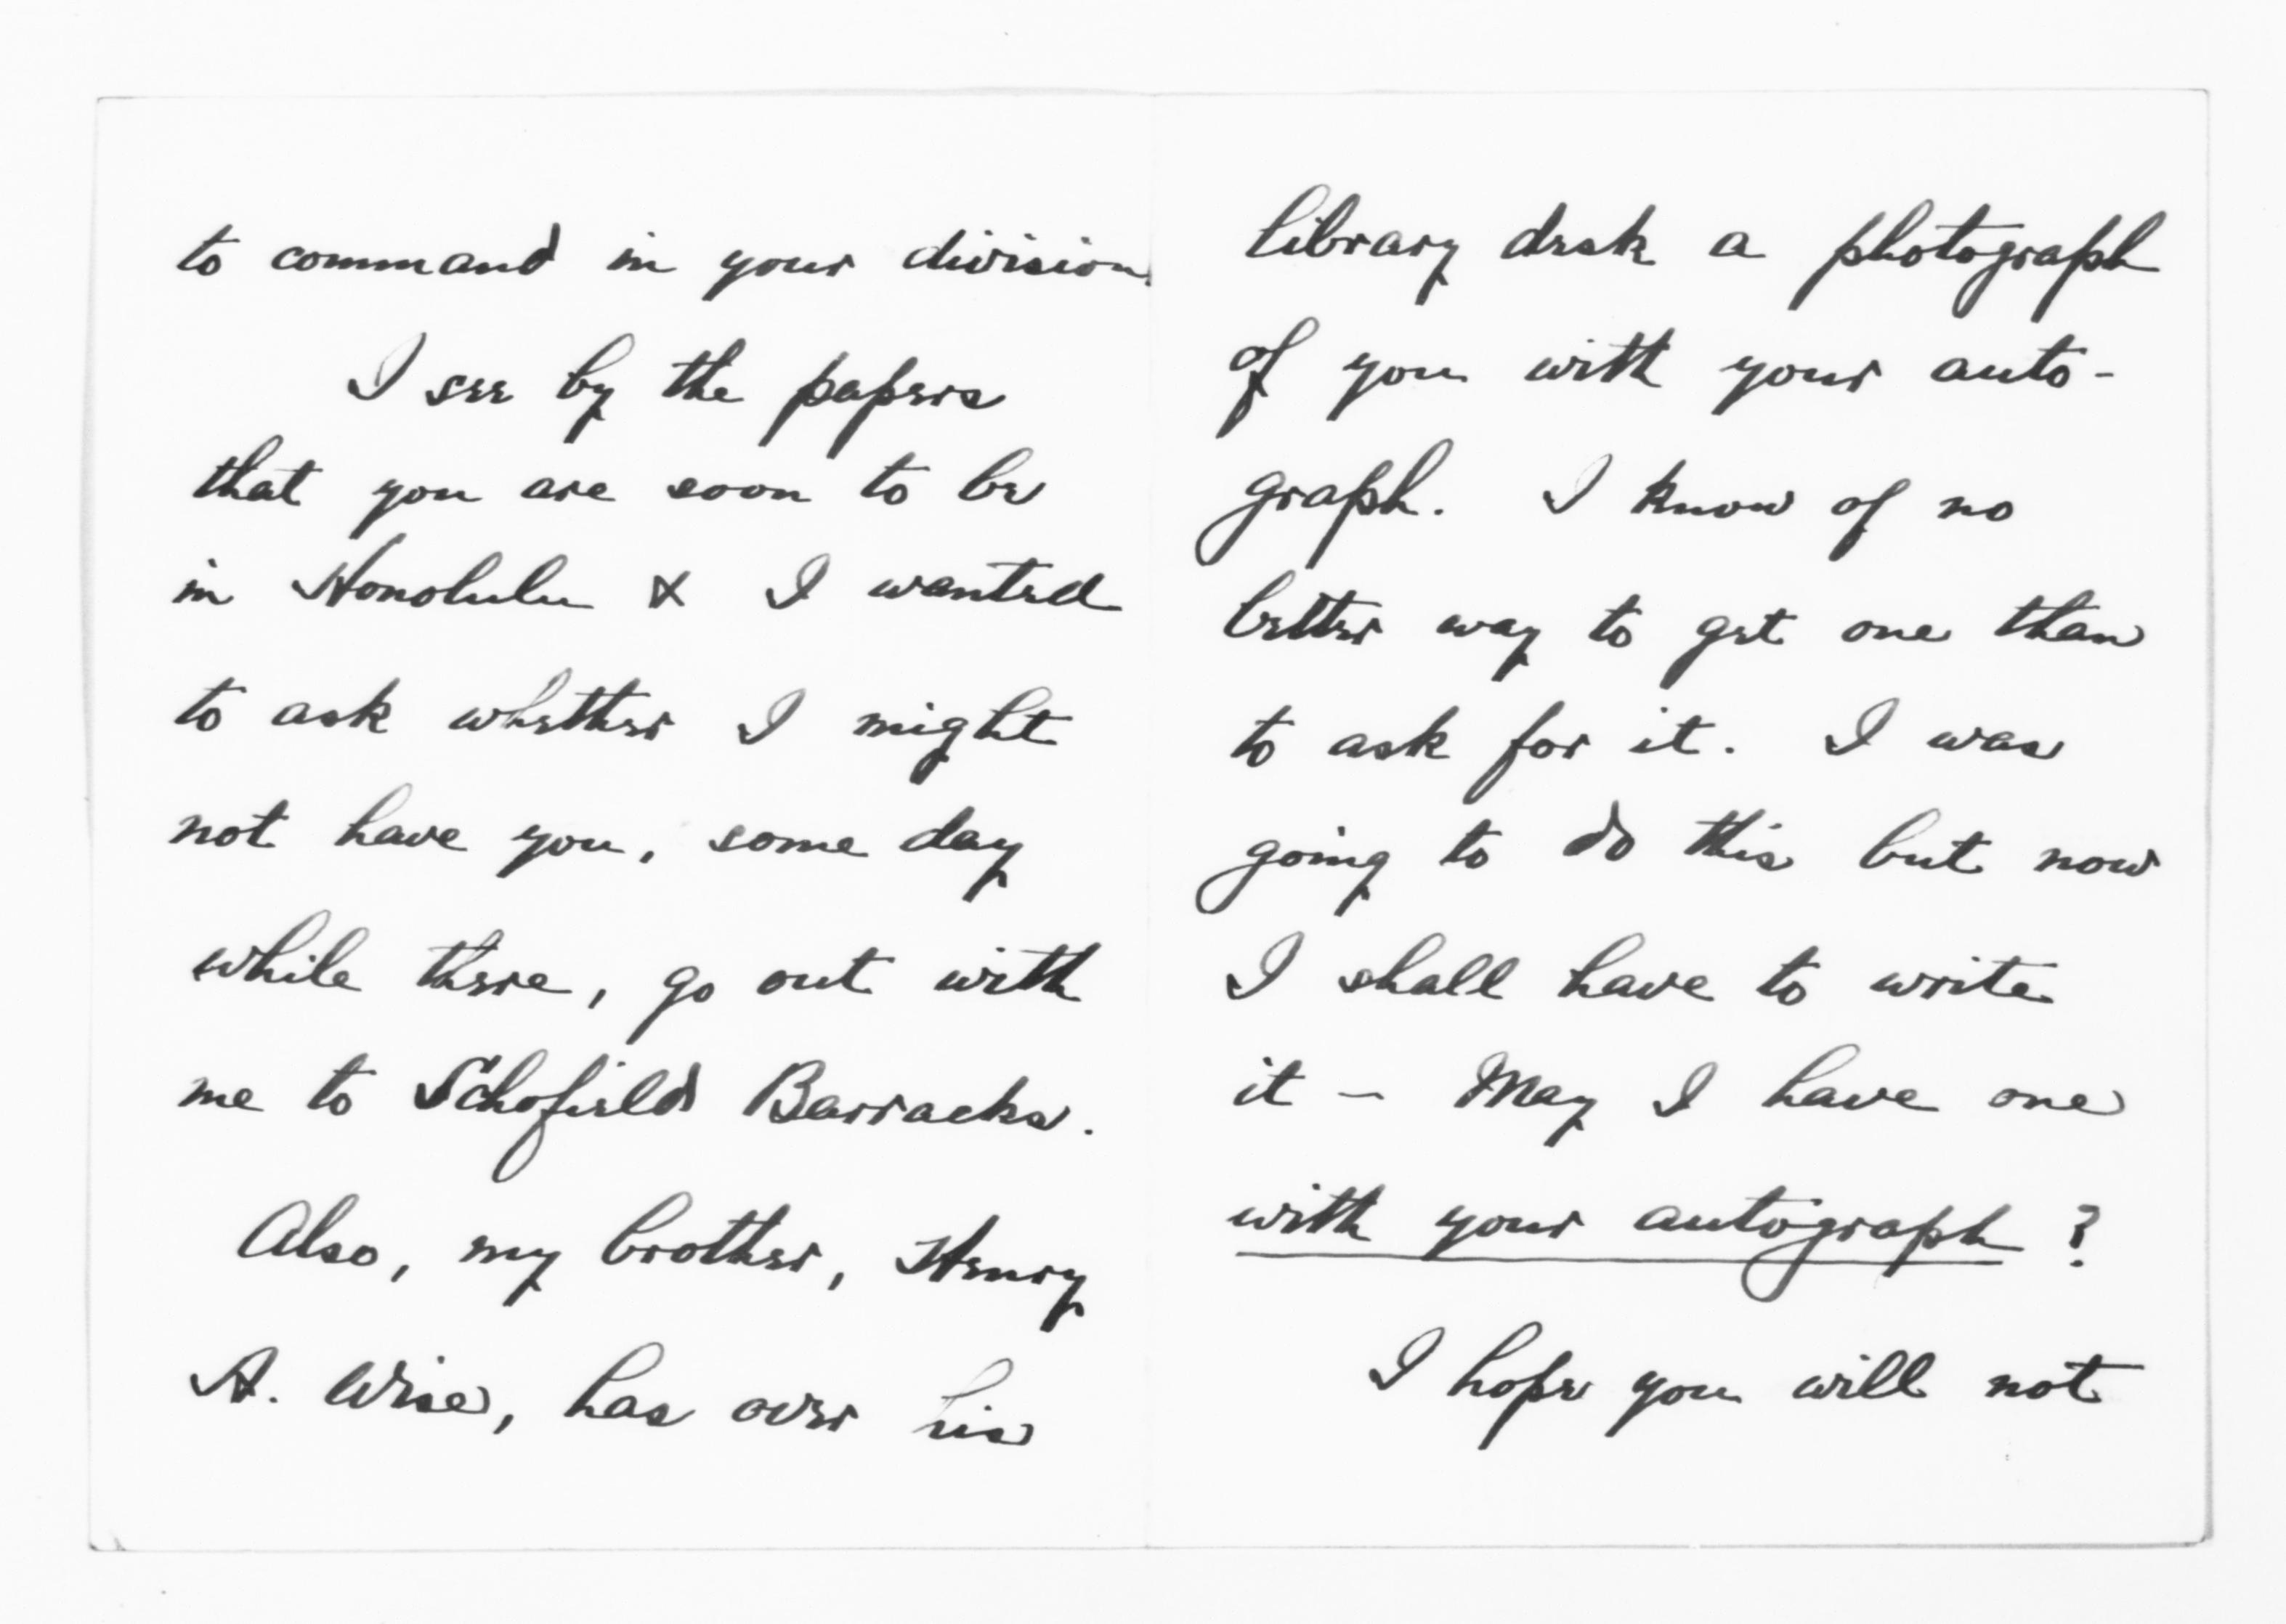 to command in your division.
I see by the papers
that you are soon to be
in Honolulu & I wanted
to ask whether I might
not have you, some day
while there, go out with
me to Schofield Barracks.
Also, my brother, Henry
A. Wise, has over his
library desk a photograph
of you with your auto-
graph. I know of no
better way to get one than
to ask for it. I was
going to do this but now
I shall have to write
it - May I have one
with your autograph ?
I hope you will not